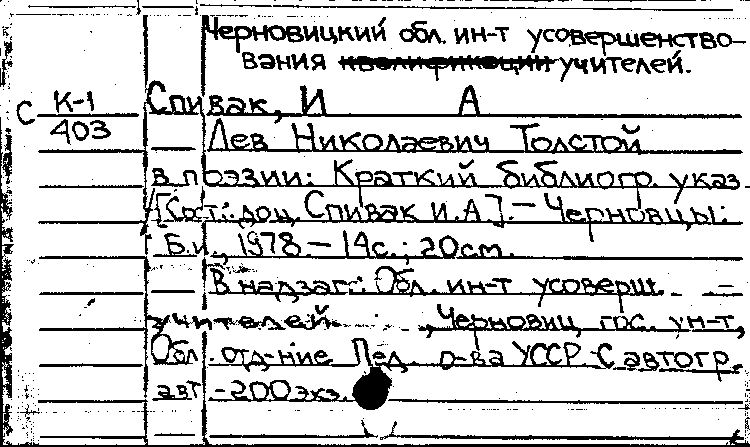 Черновицкий обл. ин-т усовершенство-
вания квалификации учителей.
С К-1
403
Спивак, И А
Лев Николаевич Толстой
в поэзии: Краткий библиогр. указ
[Сост.: доц. Спивак И.А]. - Черновцы:
Б.и., 1978. - 14с.; 20см.
В надзаг.: Обл. ин-т усоверш.
учителей, Черновиц. гос. ун-т,
Обл. отд-ние Пед. о-ва УССР. - С автогр.
авт - 200экз.